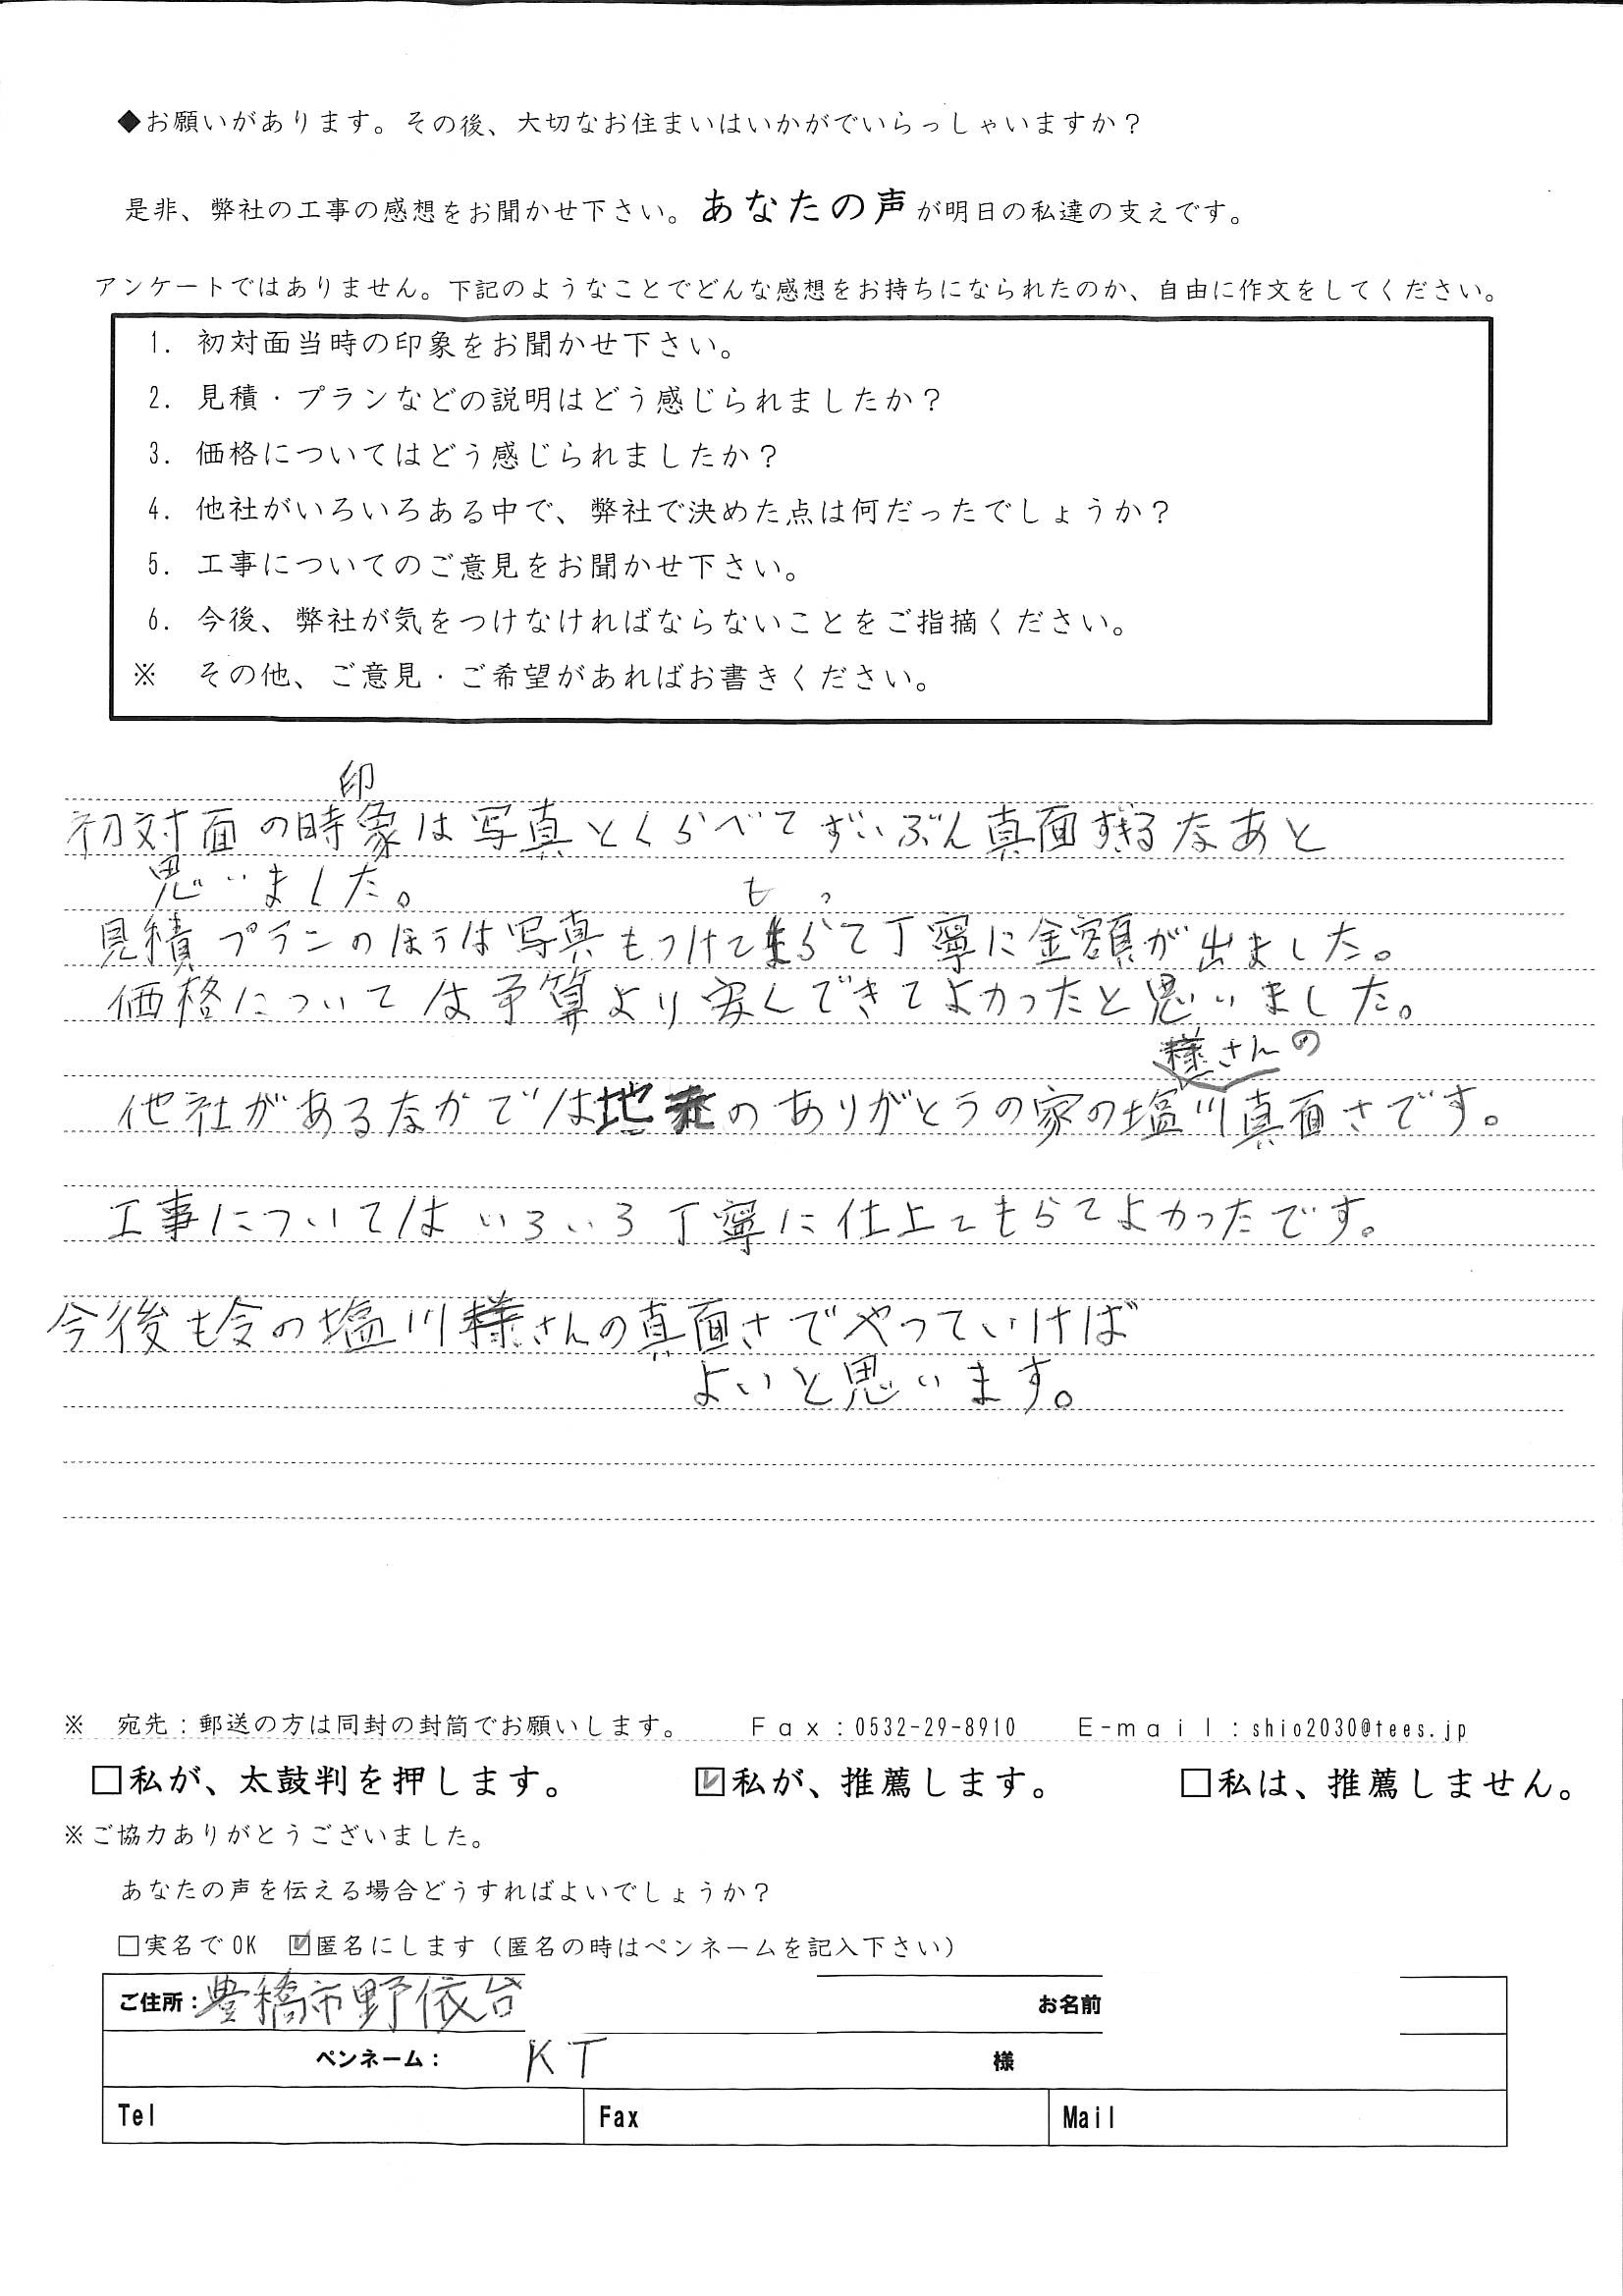 ◆お願いがあります。その後、大切なお住まいはいかがでいらっしゃいますか?
是非、弊社の工事の感想をお聞かせ下さい。あなたの声が明日の私達の支えです。
アンケートではありません。下記のようなことでどんな感想をお持ちになられたのか、自由に作文をしてください。
1. 初対面当時の印象をお聞かせ下さい。
2. 見積・プランなどの説明はどう感じられましたか?
3. 価格についてはどう感じられましたか?
4. 他社がいろいろある中で、弊社で決めた点は何だったでしょうか?
5. 工事についてのご意見をお聞かせ下さい。
6. 今後、弊社が気をつけなければならないことをご指摘ください。
※ その他、ご意見・ご希望があればお書きください。
印
初対面の時象は写真とくらべてずいぶん真面すぎるなあと
思いました。
も っ
見積プランのほうは写真もつけてらて丁寧に金額が出ました。
価格については予算より安くできてよかったと思いました。
様さんの
他社があるなかでは地元のありがとうの家の塩川真面さです。
工事についてはいろいろ丁寧に仕上てもらてよかったです。
今後も今の塩川様さんの真面さでやっていけば
よいと思います。
※ 宛先:郵送の方は同封の封筒でお願いします。 Fax:0532-29-8910 E-mail:shio2030@tees.jp
□私が、太鼓判を押します。 ☑私が、推薦します。 □私は、推薦しません。
※ご協力ありがとうございました。
あなたの声を伝える場合どうすればよいでしょうか?
□実名でOK ☑匿名にします(匿名の時はペンネームを記入下さい)
ご住所:豊橋市野依台 お名前
ペンネーム: KT 様
Tel Fax Mail